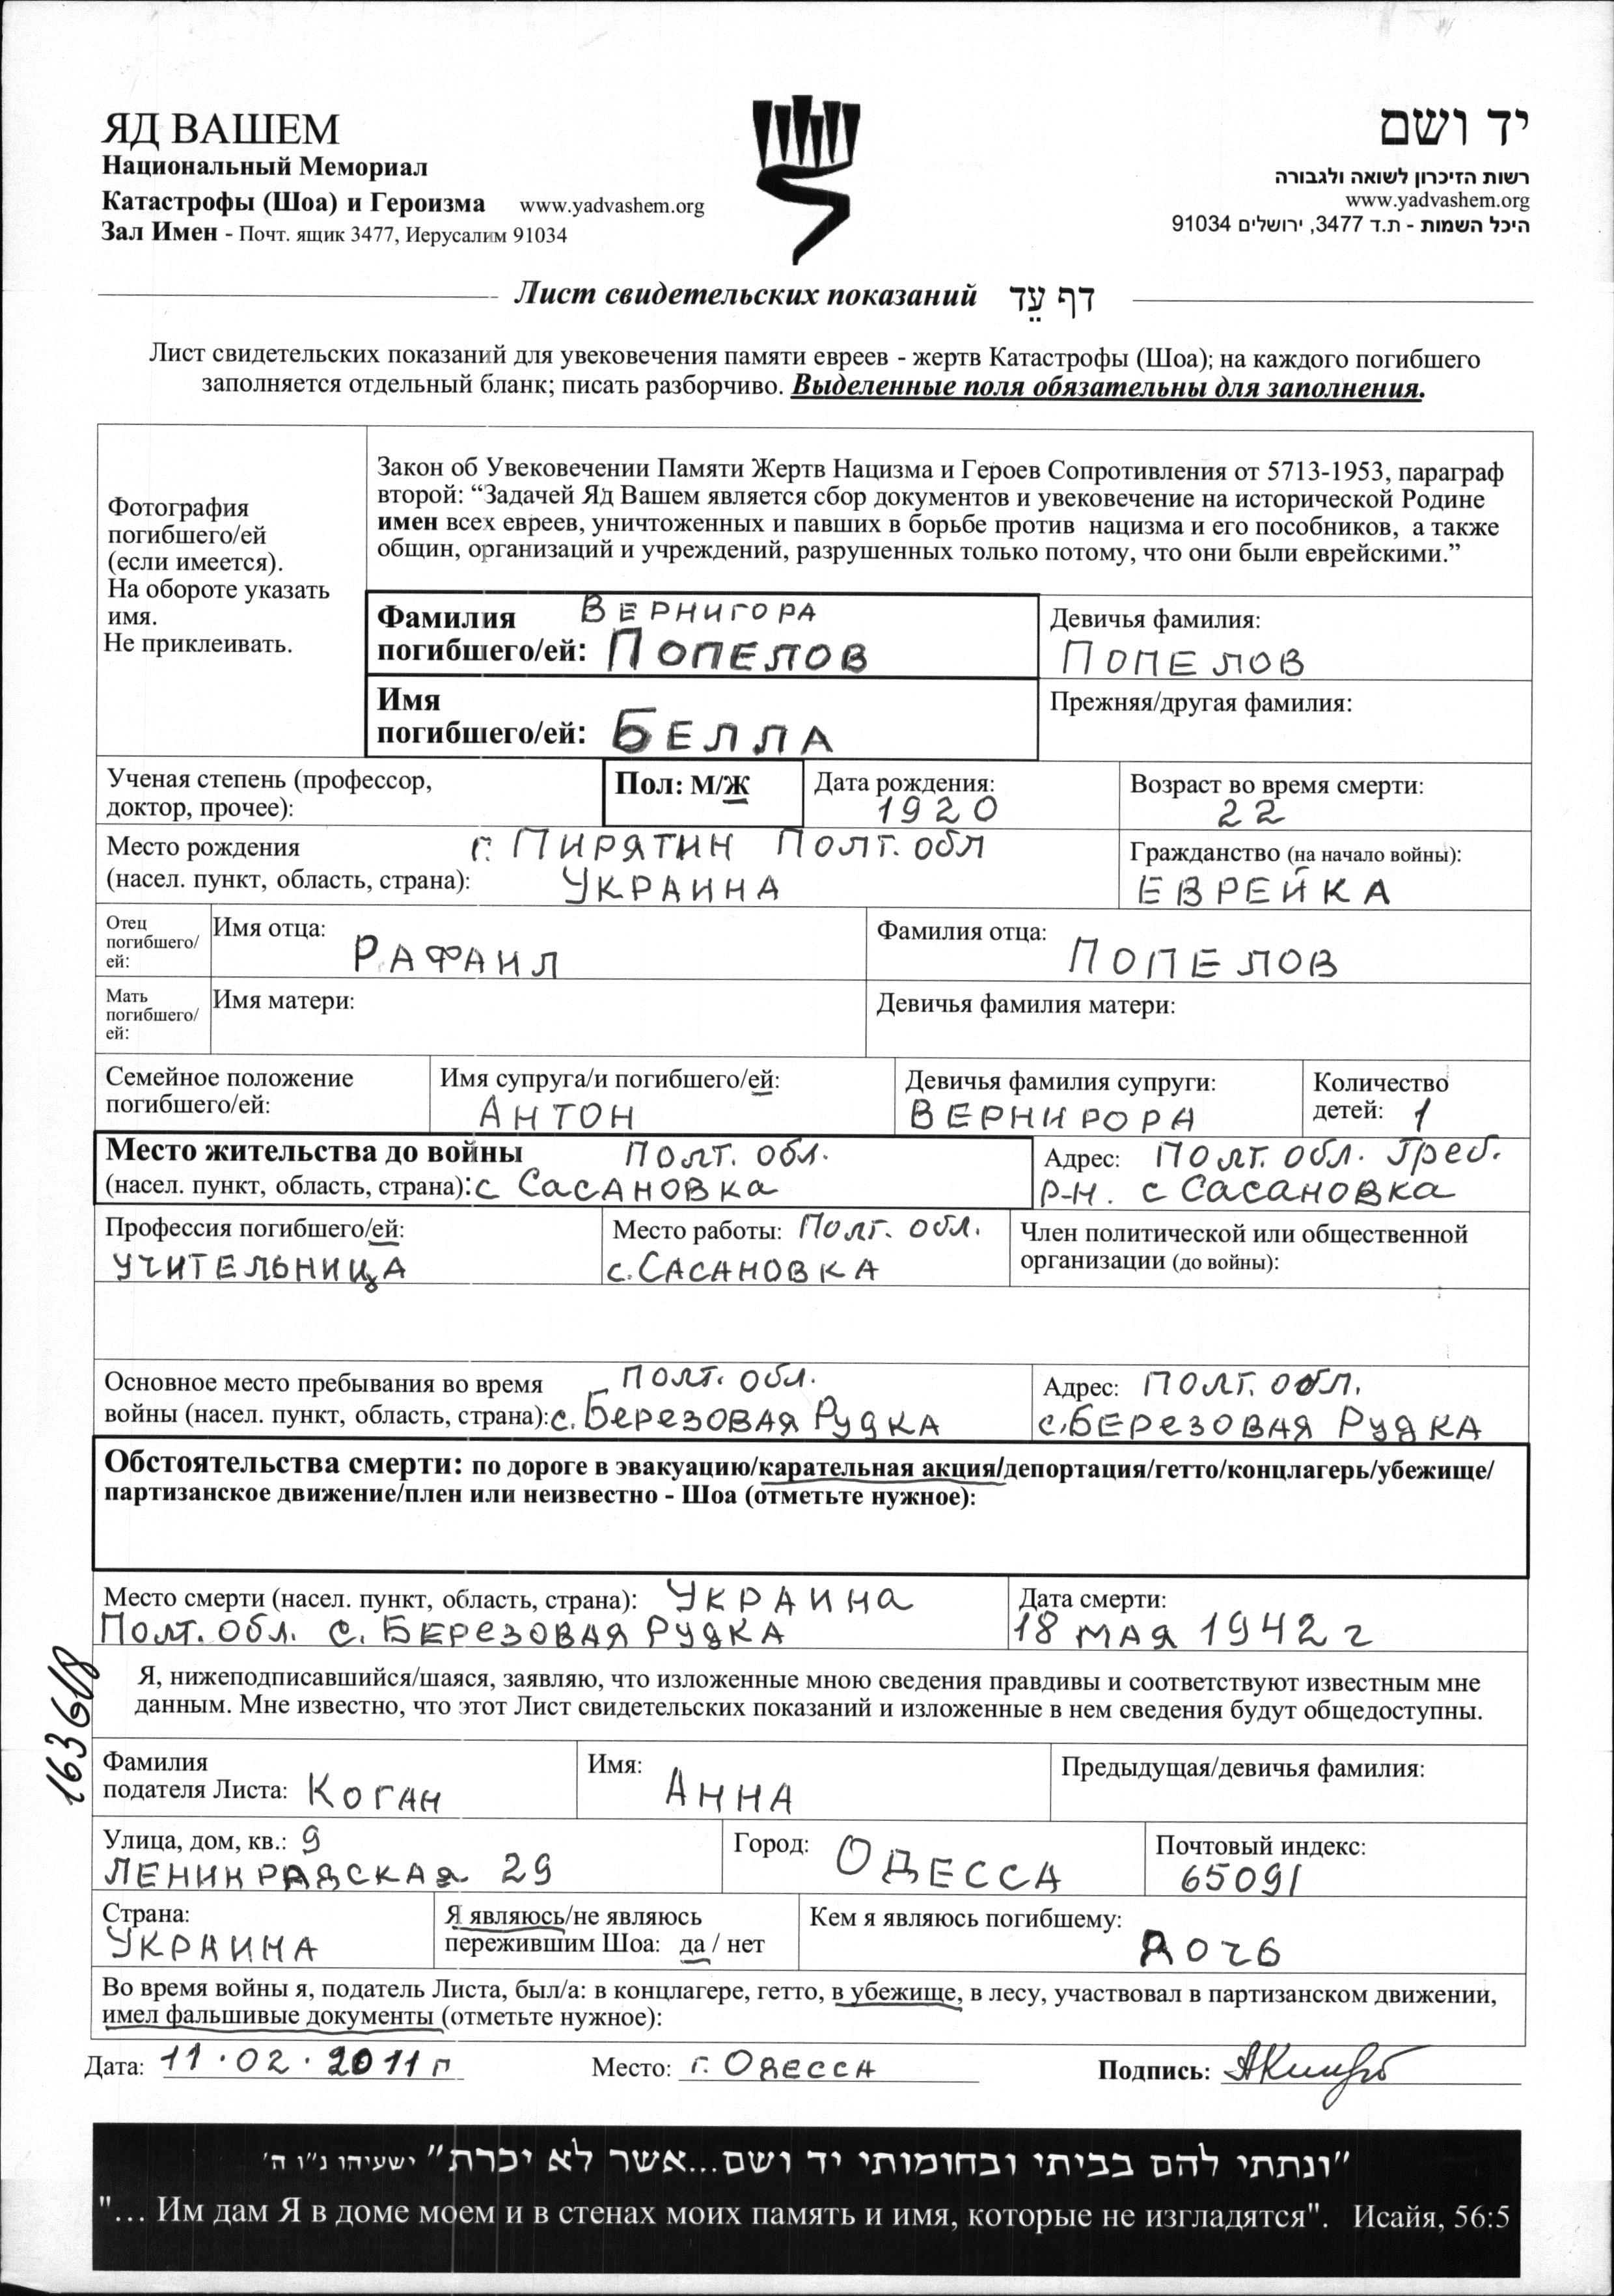 ЯД ВАШЕМ
Национальный Мемориал
Катастрофы (Шоа) и Героизма www.yadvashem.org
Зал Имен - Почт. ящик 3477, Иерусалим 91034
יד ושם
רשות הזיכרון לשואה ולגבורה
www.yadvashem.org
היכל השמות - ת.ד 3477, ירושלים 91034
Лист свидетельских показаний דף עֵד
Лист свидетельских показаний для увековечения памяти евреев - жертв Катастрофы (Шоа); на каждого погибшего
заполняется отдельный бланк; писать разборчиво. Выделенные поля обязательны для заполнения.
Фотография
погибшего/ей
(если имеется).
На обороте указать
имя.
Не приклеивать.
Закон об Увековечении Памяти Жертв Нацизма и Героев Сопротивления от 5713-1953, параграф
второй: “Задачей Яд Вашем является сбор документов и увековечение на исторической Родине
имен всех евреев, уничтоженных и павших в борьбе против нацизма и его пособников, а также
общин, организаций и учреждений, разрушенных только потому, что они были еврейскими.”
Фамилия ВЕРНИГОРА
погибшего/ей: ПОПЕЛОВ
Девичья фамилия:
ПОПЕЛОВ
Имя
погибшего/ей: БЕЛЛА
Прежняя/другая фамилия:
Ученая степень (профессор,
доктор, прочее):
Пол: М/Ж
Дата рождения:
1920
Возраст во время смерти:
22
Место рождения г. ПИРЯТИН Полт. обл
(насел. пункт, область, страна): УКРАИНА
Гражданство (на начало войны):
ЕВРЕЙКА
Отец
погибшего/
ей:
Имя отца:
РАФАИЛ
Фамилия отца:
ПОПЕЛОВ
Мать
погибшего/
ей:
Имя матери:
Девичья фамилия матери:
Семейное положение
погибшего/ей:
Имя супруга/и погибшего/ей:
АНТОН
Девичья фамилия супруги:
ВЕРНИРОРА
Количество
детей: 1
Место жительства до войны Полт. обл.
(насел. пункт, область, страна): с САСАНОВКА
Адрес: Полт. обл. Греб.
р-н. с САСАНОВКА
Профессия погибшего/ей:
УЧИТЕЛЬНИЦА
Место работы: Полт. обл.
с. САСАНОВКА
Член политической или общественной
организации (до войны):
Основное место пребывания во время Полт. обл.
войны (насел. пункт, область, страна): с. БЕРЕЗОВАЯ РУДКА
Адрес: Полт. обл.
с. БЕРЕЗОВАЯ РУДКА
Обстоятельства смерти: по дороге в эвакуацию/карательная акция/депортация/гетто/концлагерь/убежище/
партизанское движение/плен или неизвестно - Шоа (отметьте нужное):
Место смерти (насел. пункт, область, страна): УКРАИНА
Полт. обл. с. БЕРЕЗОВАЯ РУДКА
Дата смерти:
18 мая 1942 г
Я, нижеподписавшийся/шаяся, заявляю, что изложенные мною сведения правдивы и соответствуют известным мне
данным. Мне известно, что этот Лист свидетельских показаний и изложенные в нем сведения будут общедоступны.
Фамилия
подателя Листа: КОГАН
Имя:
АННА
Предыдущая/девичья фамилия:
Улица, дом, кв.: 9
ЛЕНИНРАДСКАЯ 29
Город: ОДЕССА
Почтовый индекс:
65091
Страна:
УКРАИНА
Я являюсь/не являюсь
пережившим Шоа: да / нет
Кем я являюсь погибшему:
ДОЧЬ
Во время войны я, податель Листа, был/а: в концлагере, гетто, в убежище, в лесу, участвовал в партизанском движении,
имел фальшивые документы (отметьте нужное):
Дата: 11.02.2011 г Место: г. ОДЕССА Подпись:
"ונתתי להם בביתי ובחומותי יד ושם...אשר לא יכרת" ישעיהו נ"ו ה'
"... Им дам Я в доме моем и в стенах моих память и имя, которые не изгладятся". Исайя, 56:5